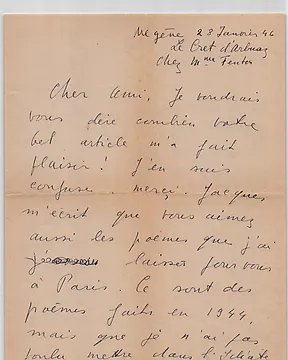 Megève 28 Janvier 46
Le Cret d'Arbois
chez Mme
Cher ami, Je voudrais
vous dire combien votre
bel article m'a fait
plaisir ! J'en suis
confuse. merci. Jacques
m'écrit que vous aimez
aussi les poèmes que j'ai
laissés pour vous
à Paris. Ce sont des
poèmes faits en 1944
mais que je n'ai pas
voulu mettre dans